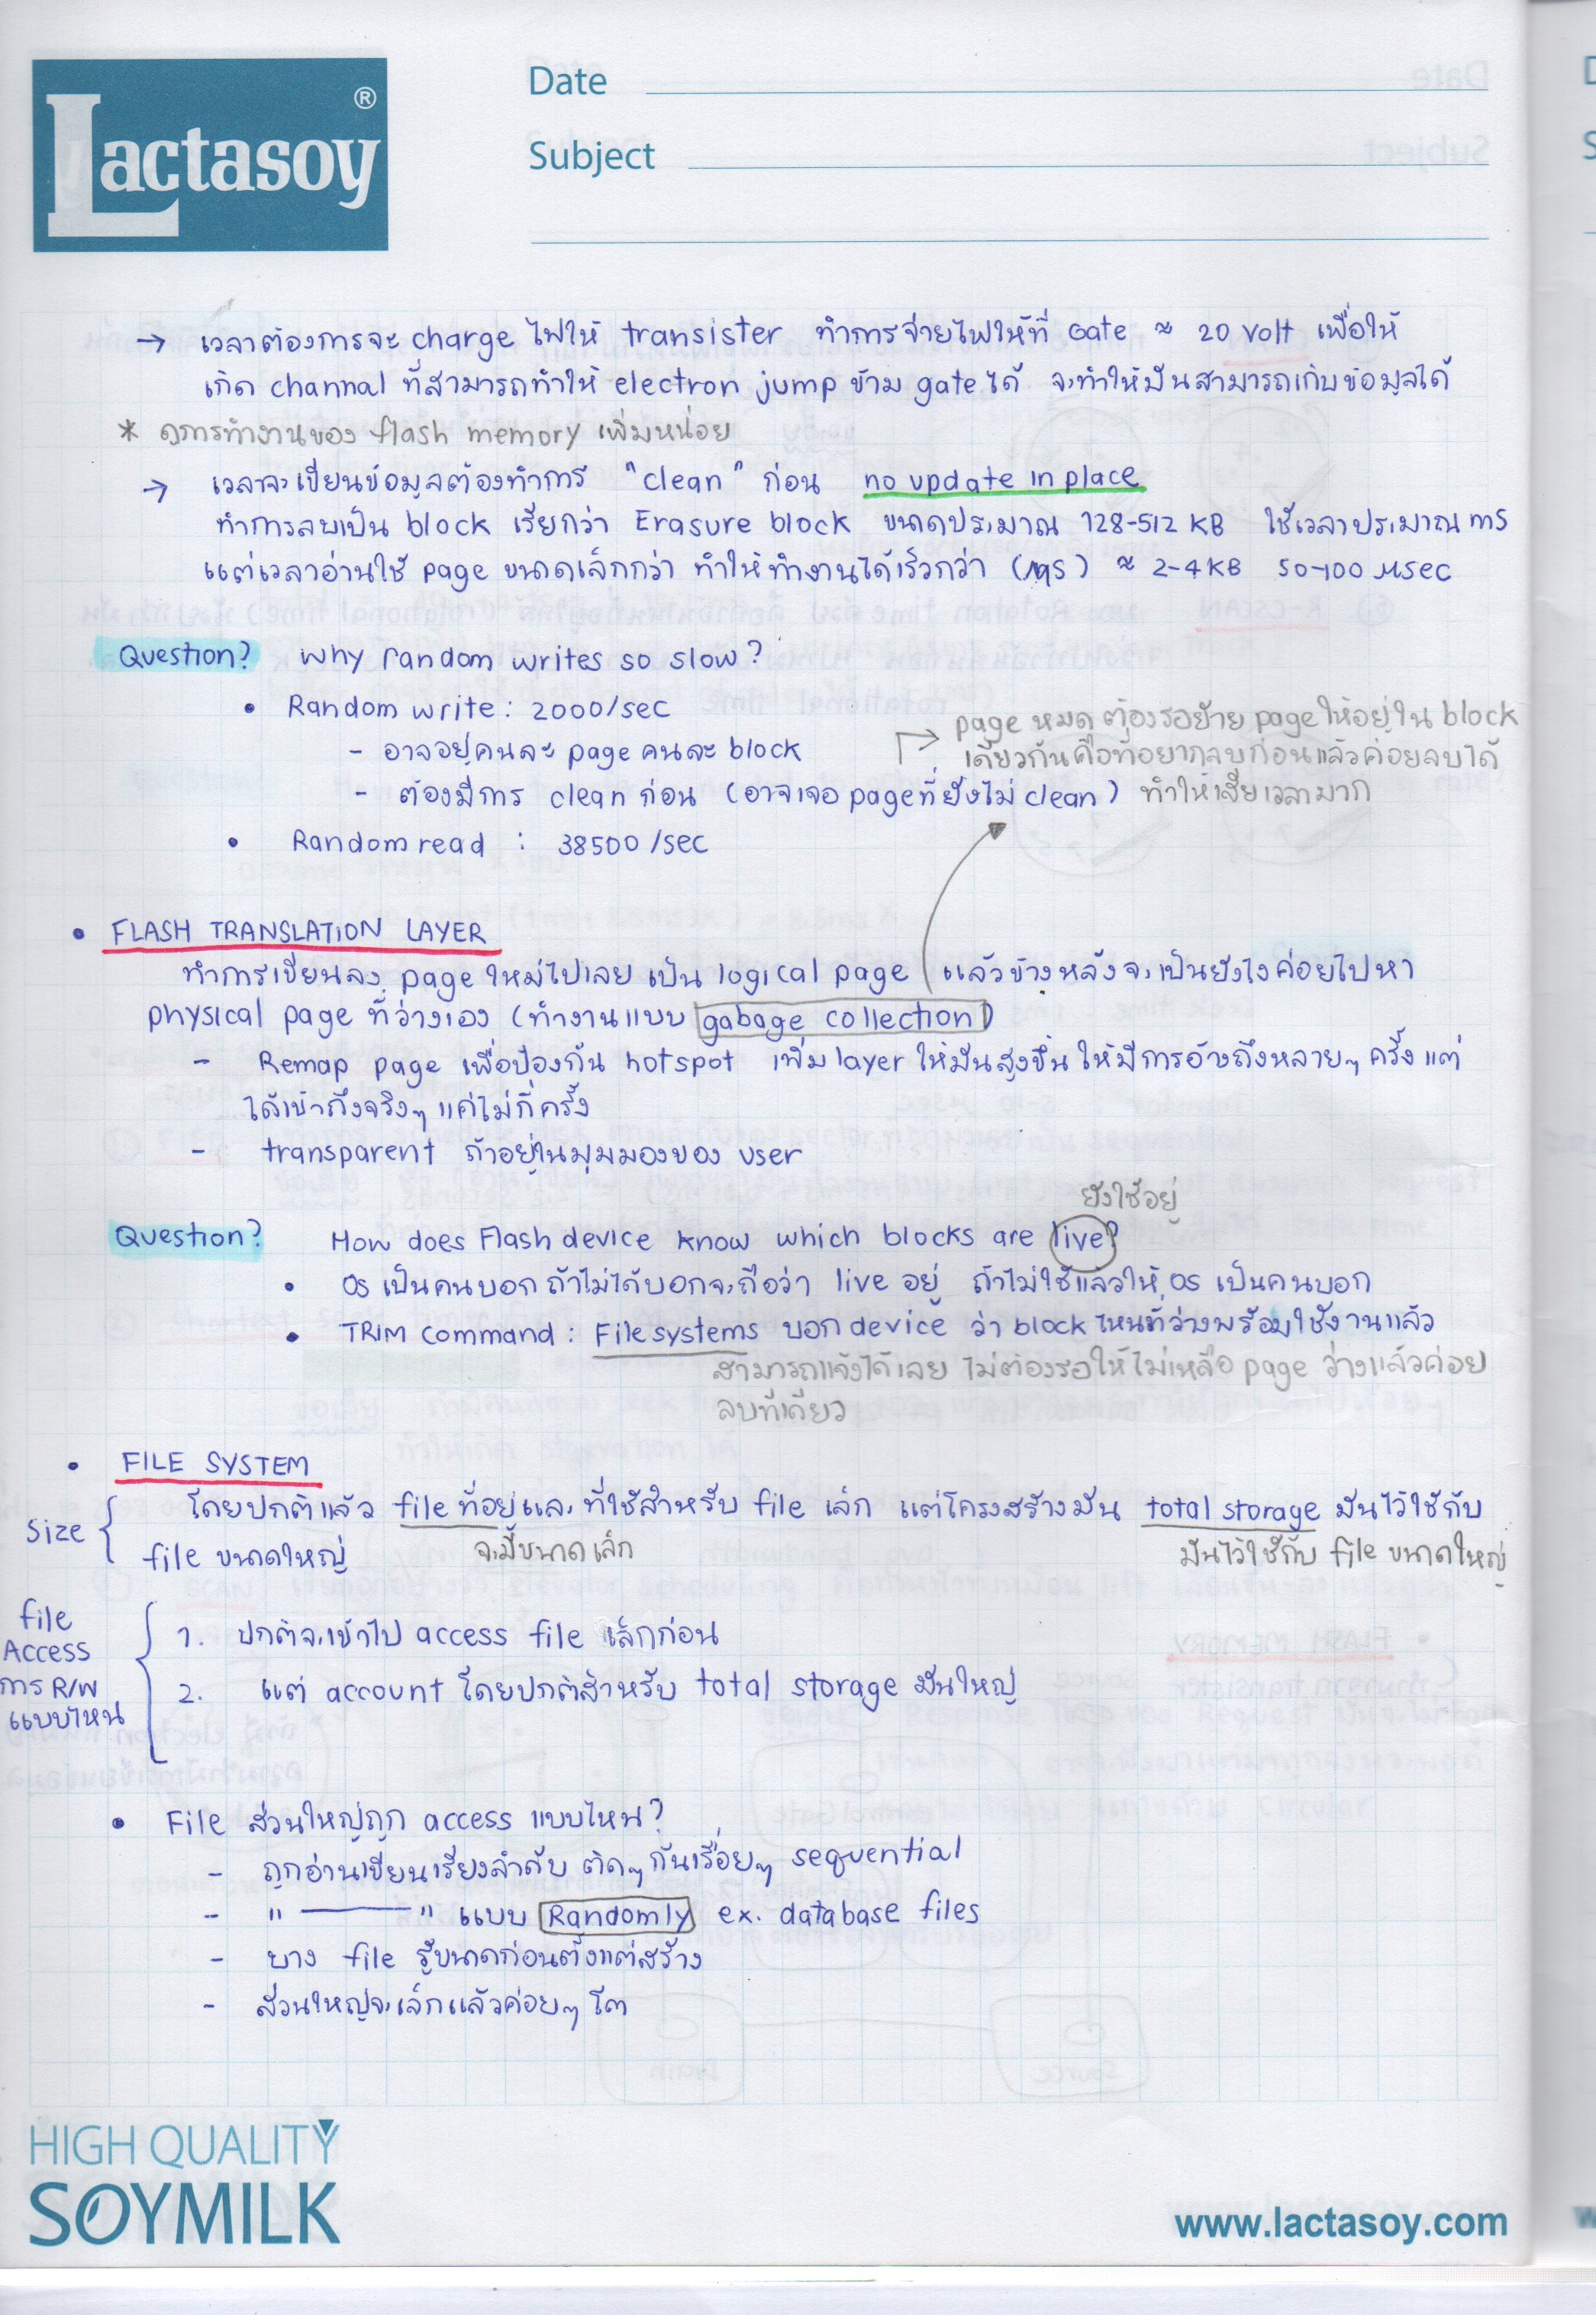 Lactasoy ®
Date
Subject
→ เวลาต้องการจะ charge ไฟให้ transister ทำการจ่ายไฟให้ที่ Gate ≈ 20 volt เพื่อให้
เกิด channal ที่สามารถทำให้ electron jump ข้าม gate ได้ จะทำให้มันสามารถเก็บข้อมูลได้
* ดูการทำงานของ flash memory เพิ่มหน่อย
→ เวลาจะเขียนข้อมูลต้องทำการ "clean" ก่อน no update in place
ทำการลบเป็น block เรียกว่า Erasure block ขนาดประมาณ 128-512 KB ใช้เวลาประมาณ ms
แต่เวลาอ่านใช้ page ขนาดเล็กกว่า ทำให้ทำงานได้เร็วกว่า (μs) ≈ 2-4 KB 50-100 μsec
Question? why random writes so slow?
• Random write: 2000/sec
- อาจอยู่คนละ page คนละ block
- ต้องมีการ clean ก่อน (อาจเจอ page ที่ยังไม่ clean)
page หมด ต้องรอย้าย page ให้อยู่ใน block
เดียวกันคือที่อยากลบก่อนแล้วค่อยลบได้
ทำให้เสียเวลามาก
• Random read : 38500 /sec
• FLASH TRANSLATION LAYER
ทำการเขียนลง page ใหม่ไปเลย เป็น logical page แล้วข้างหลังจะเป็นยังไงค่อยไปหา
physical page ที่ว่างเอง (ทำงานแบบ gabage collection)
- Remap page เพื่อป้องกัน hotspot เพิ่ม layer ให้มันสูงขึ้น ให้มีการอ้างถึงหลายๆ ครั้ง แต่
ได้เข้าถึงจริงๆ แค่ไม่กี่ครั้ง
- transparent ถ้าอยู่ในมุมมองของ user
ยังใช้อยู่
Question? How does Flash device know which blocks are live?
• OS เป็นคนบอก ถ้าไม่ได้บอกจะถือว่า live อยู่ ถ้าไม่ใช้แล้วให้ OS เป็นคนบอก
• TRIM command : File systems บอก device ว่า block ไหนที่ว่างพร้อมใช้งานแล้ว
สามารถแจ้งได้เลย ไม่ต้องรอให้ไม่เหลือ page ว่างแล้วค่อย
ลบทีเดียว
• FILE SYSTEM
size { โดยปกติแล้ว file ที่อยู่และที่ใช้สำหรับ file เล็ก แต่โครงสร้างมัน total storage มันไว้ใช้กับ
file ขนาดใหญ่ จะมีขนาดเล็ก มันไว้ใช้กับ file ขนาดใหญ่
file
Access
การ R/W
แบบไหน
1. ปกติจะเข้าไป access file เล็กก่อน
2. แต่ account โดยปกติสำหรับ total storage มันใหญ่
• File ส่วนใหญ่ถูก access แบบไหน?
- ถูกอ่านเขียนเรียงลำดับ ติดๆ กันเรื่อยๆ sequential
- " ——— " แบบ Randomly ex. database files
- บาง file รู้ขนาดก่อนตั้งแต่สร้าง
- ส่วนใหญ่จะเล็กแล้วค่อยๆ โต
HIGH QUALITY
SOYMILK
www.lactasoy.com